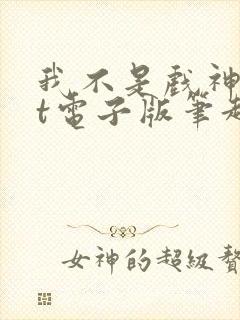 我不是戲神
t電子版筆趣
女神的超級贅